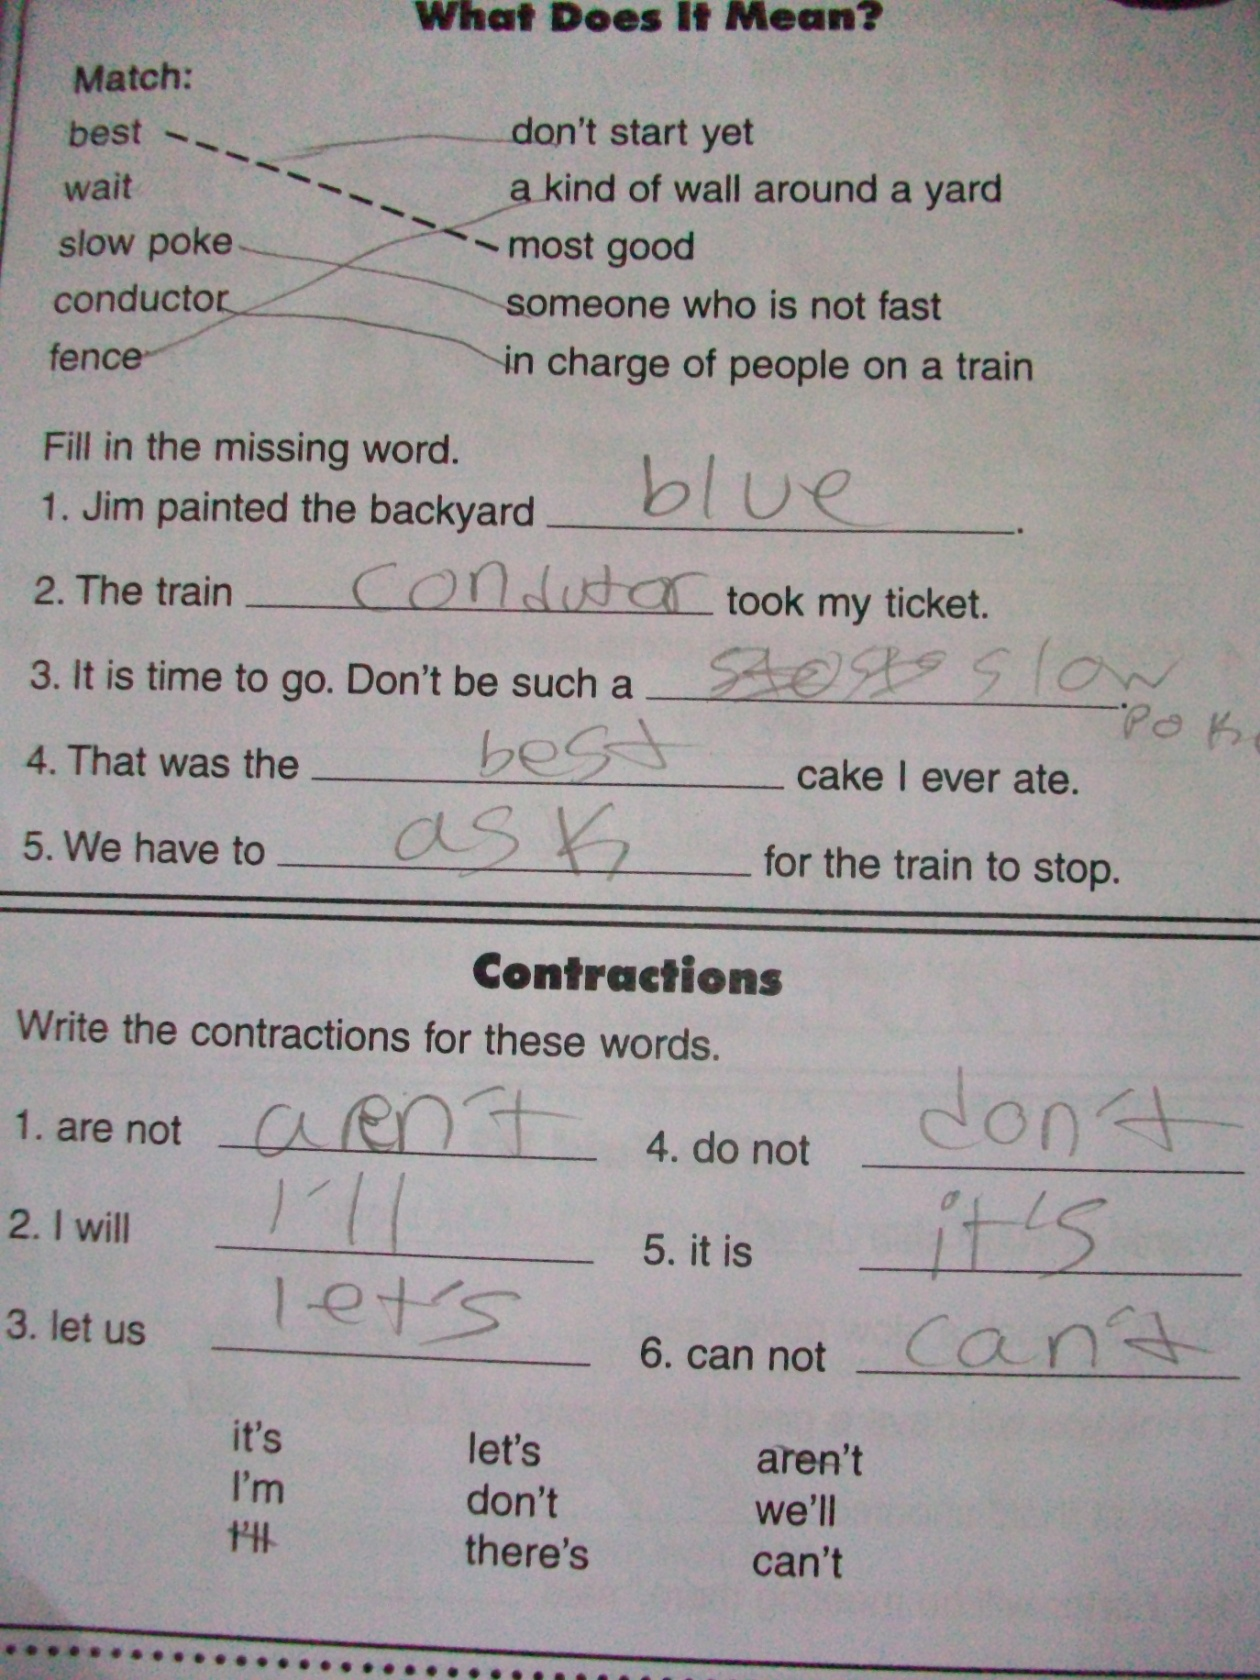 What Does It Mean?
Match:
best don't start yet
wait a kind of wall around a yard
slow poke most good
conductor someone who is not fast
fence in charge of people on a train
Fill in the missing word.
1. Jim painted the backyard blue.
2. The train condutor took my ticket.
3. It is time to go. Don't be such a slow
poke.
4. That was the best cake I ever ate.
5. We have to ask for the train to stop.
Contractions
Write the contractions for these words.
1. are not aren't 4. do not don't
2. I will I'll 5. it is it's
3. let us let's 6. can not can't
it's let's aren't
I'm don't we'll
I'll there's can't